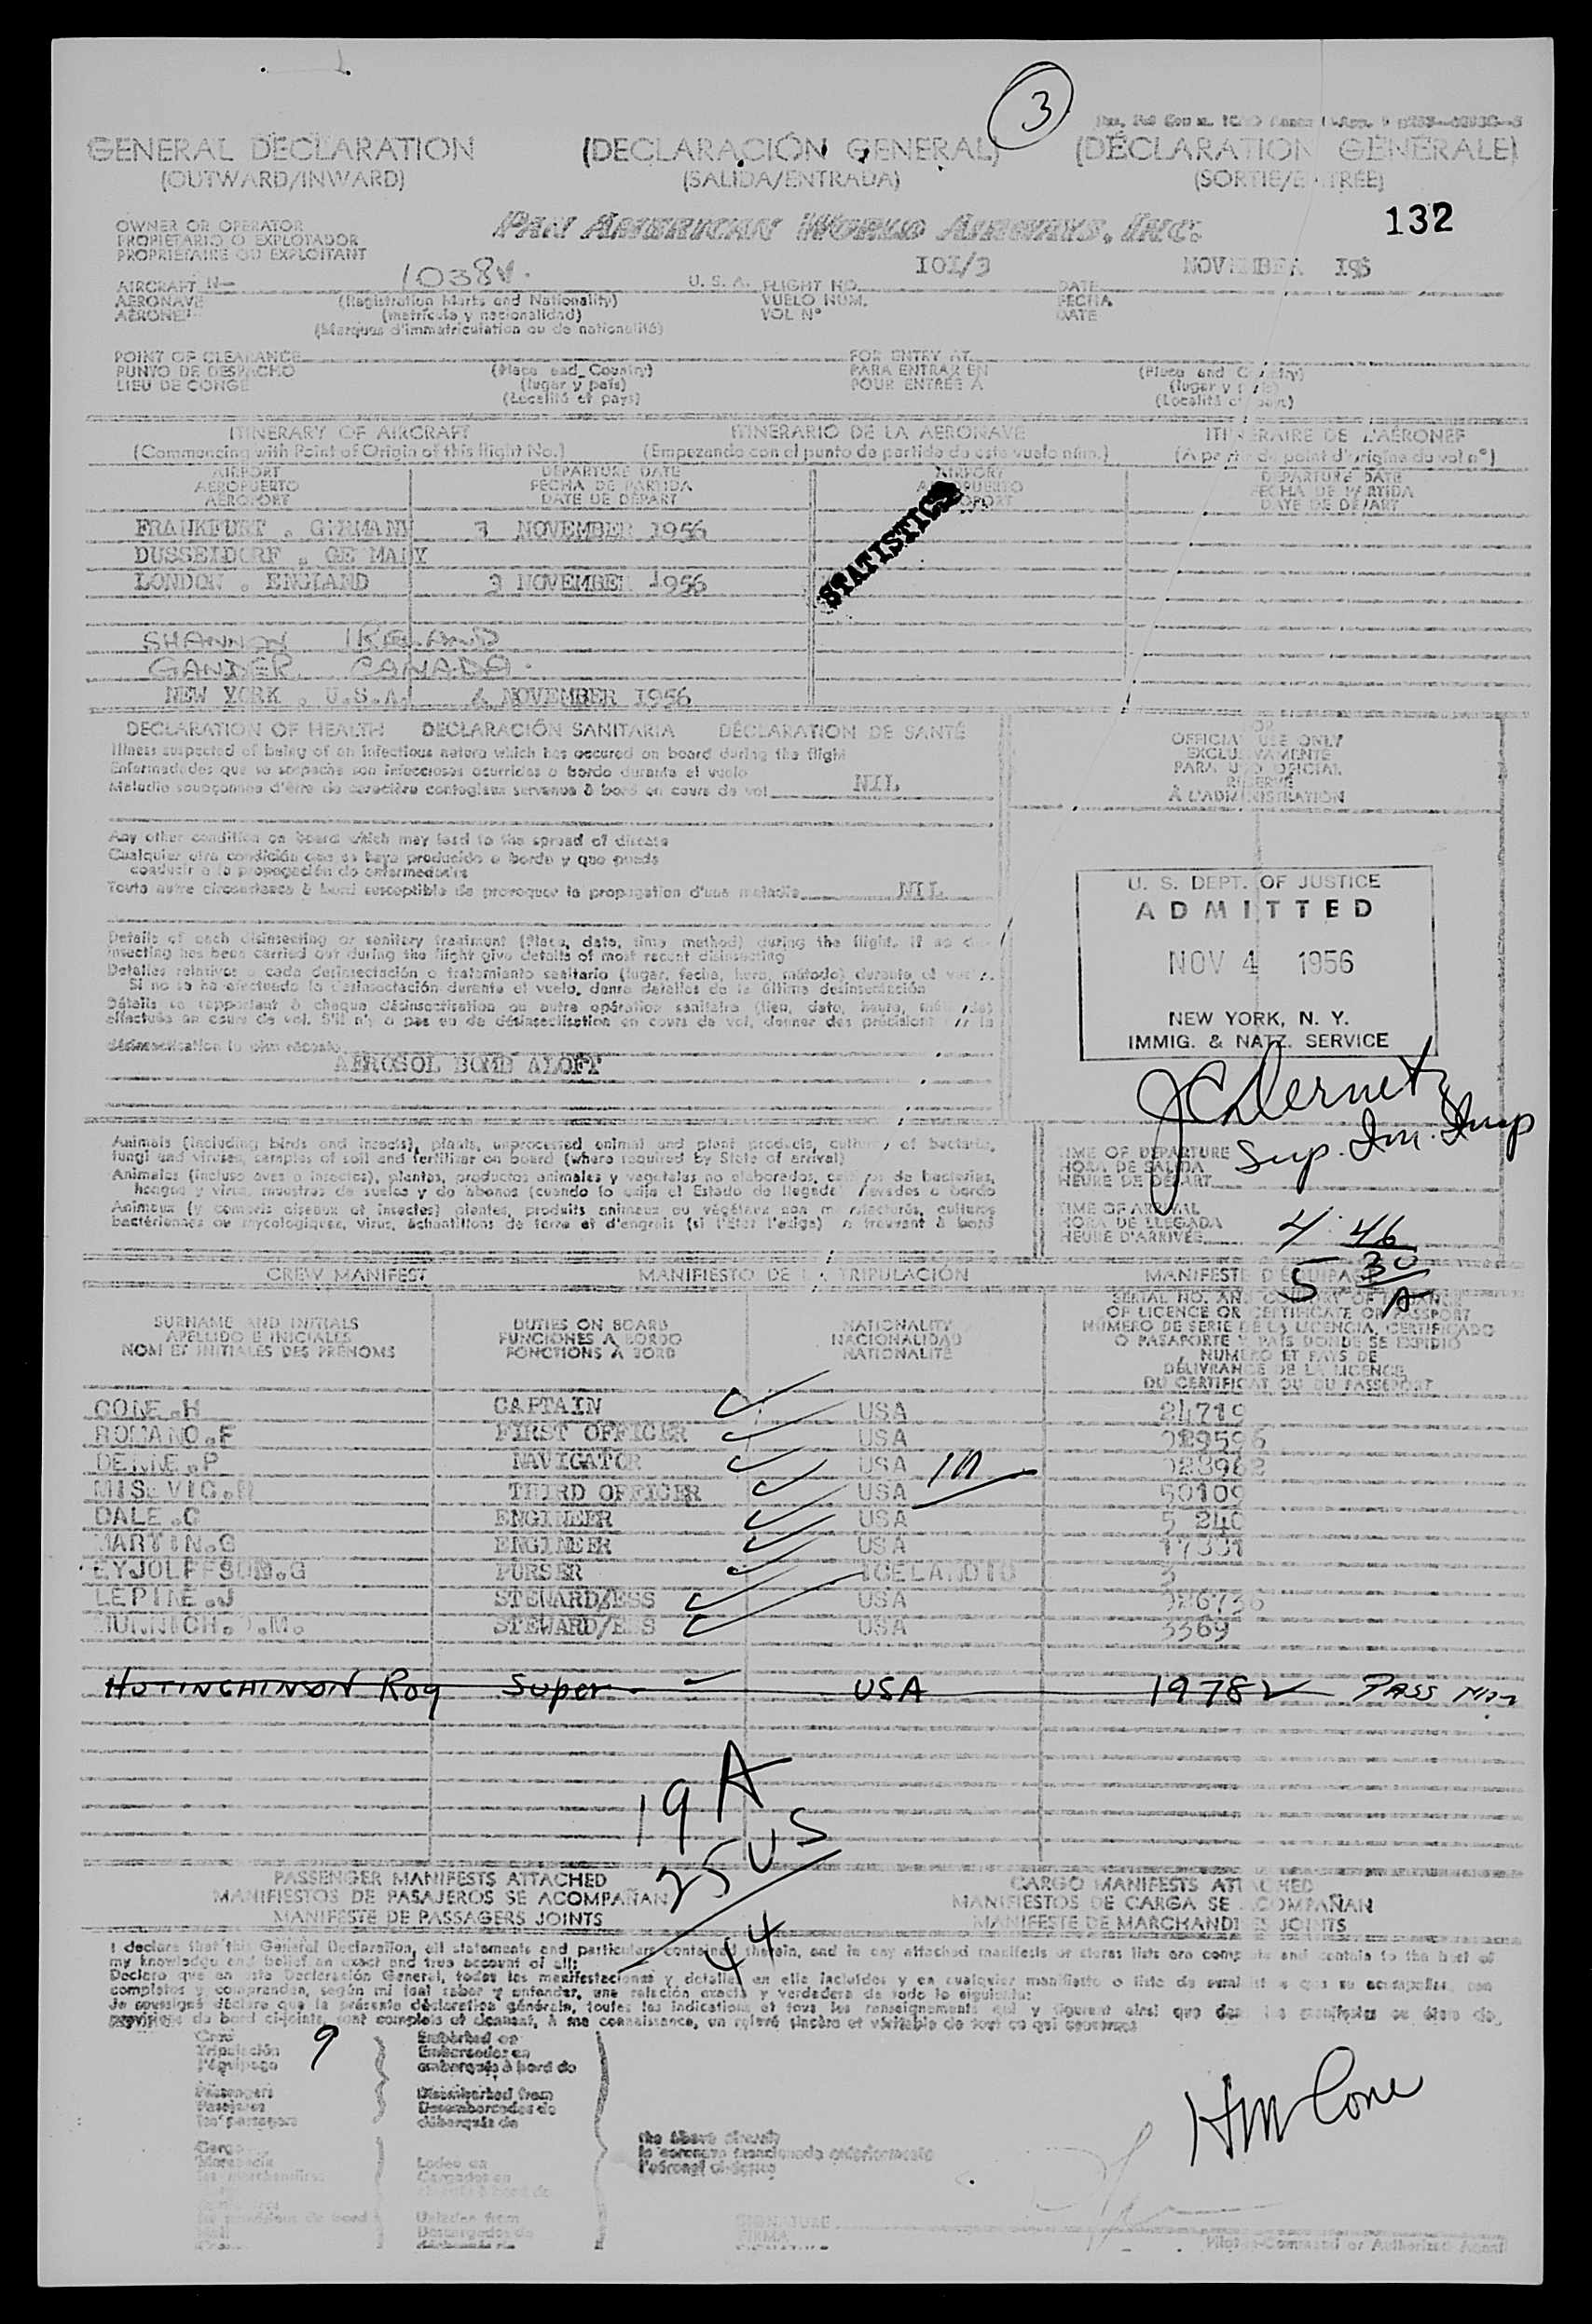 3
GENERAL DECLARATION (DECLARACIÓN GENERAL) (DÉCLARATION GÉNÉRALE)
(OUTWARD/INWARD) (SALIDA/ENTRADA) (SORTIE/ENTRÉE)
OWNER OR OPERATOR
PROPIETARIO O EXPLOTADOR
PROPRIETAIRE OU EXPLOITANT
PAN AMERICAN WORLD AIRWAYS, INC.
132
AIRCRAFT N— 1038V. U. S. A. FLIGHT NO. 101/3 DATE NOVEMBER 195
AERONAVE (Registration Marks and Nationality) VUELO NUM. FECHA
AÉRONEF (matrícula y nacionalidad) VOL N° DATE
(Marques d'immatriculation ou de nationalité)
POINT OF CLEARANCE FOR ENTRY AT
PUNTO DE DESPACHO (Place and Country) PARA ENTRAR EN (Place and Country)
LIEU DE CONGÉ (lugar y país) POUR ENTRÉE À (lugar y país)
(Localité et pays) (Localité et pays)
ITINERARY OF AIRCRAFT ITINERARIO DE LA AERONAVE ITINÉRAIRE DE L'AÉRONEF
(Commencing with Point of Origin of this flight No.) (Empezando con el punto de partida de este vuelo núm.) (A partir du point d'origine du vol n°)
AIRPORT DEPARTURE DATE AIRPORT DEPARTURE DATE
AEROPUERTO FECHA DE PARTIDA AEROPUERTO FECHA DE PARTIDA
AÉROPORT DATE DE DÉPART AÉROPORT DATE DE DÉPART
STATISTICS
FRANKFURT . GERMANY 3 NOVEMBER 1956
DUSSELDORF . GERMANY
LONDON . ENGLAND 3 NOVEMBER 1956
SHANNON IRELAND
GANDER CANADA.
NEW YORK . U.S.A. 4 NOVEMBER 1956
DECLARATION OF HEALTH DECLARACIÓN SANITARIA DÉCLARATION DE SANTÉ
Illness suspected of being of an infectious nature which has occured on board during the flight
Enfermedades que se sospecha son infecciosas ocurridas a bordo durante el vuelo
Maladie soupçonnée d'être de caractère contagieux survenue à bord en cours de vol NIL
FOR
OFFICIAL USE ONLY
EXCLUSIVAMENTE
PARA USO OFICIAL
RÉSERVÉ
À L'ADMINISTRATION
Any other condition on board which may lead to the spread of disease
Cualquier otra condición que se haya producido a bordo y que pueda
conducir a la propagación de enfermedades
Toute autre circonstance à bord susceptible de provoquer la propagation d'une maladie NIL
U. S. DEPT. OF JUSTICE
ADMITTED
NOV 4 1956
NEW YORK, N. Y.
IMMIG. & NATZ. SERVICE
Details of each disinsecting or sanitary treatment (Place, date, time method) during the flight. If no dis-
insecting has been carried out during the flight give details of most recent disinsecting
Detalles relativos a cada desinsectación o tratamiento sanitario (lugar, fecha, hora, método) durante el vuelo.
Si no se ha efectuado la desinsectación durante el vuelo, danse detalles de la última desinsectación
Détails se rapportant à chaque désinsectisation ou autre opération sanitaire (lieu, date, heure, méthode)
effectuée en cours de vol. S'il n'y a pas eu de désinsectisation en cours de vol, donner des précisions sur la
désinsectisation la plus récente
AEROSOL BOMB ALOFT
Sup. Im. Insp
Animals (including birds and insects), plants, unprocessed animal and plant products, cultures of bacteria,
fungi and viruses, samples of soil and fertilizer on board (where required by State of arrival)
Animales (incluso aves e insectos), plantas, productos animales y vegetales no elaborados, cultivos de bacterias,
hongos y virus, muestras de suelos y de abonos (cuando lo exija el Estado de llegada) llevados a bordo
Animaux (y compris oiseaux et insectes) plantes, produits animaux ou végétaux non manufacturés, cultures
bactériennes ou mycologiques, virus, échantillons de terre et d'engrais (si l'État l'exige) se trouvant à bord
TIME OF DEPARTURE
HORA DE SALIDA
HEURE DE DÉPART
TIME OF ARRIVAL
HORA DE LLEGADA
HEURE D'ARRIVÉE 4 46
5 30
A
CREW MANIFEST MANIFIESTO DE LA TRIPULACIÓN MANIFESTE D'ÉQUIPAGE
SURNAME AND INITIALS DUTIES ON BOARD NATIONALITY SERIAL NO. AND COUNTRY OF ISSUANCE
APELLIDO E INICIALES FUNCIONES A BORDO NACIONALIDAD OF LICENCE OR CERTIFICATE OR PASSPORT
NOM ET INITIALES DES PRÉNOMS FONCTIONS À BORD NATIONALITÉ NÚMERO DE SERIE DE LA LICENCIA, CERTIFICADO
O PASAPORTE Y PAÍS DONDE SE EXPIDIÓ
NUMÉRO ET PAYS DE
DÉLIVRANCE DE LA LICENCE,
DU CERTIFICAT OU DU PASSEPORT
CONE.H CAPTAIN USA 24719
ROMANO.F FIRST OFFICER USA 029596
DENNE.P NAVIGATOR USA 023962
THIRD OFFICER USA 50109
DALE.C ENGINEER USA
MARTIN.G ENGINEER USA 17331
EYJOLFFSON.G PURSER ICELANDIC 3
LEPINE.J STEWARD/ESS USA 026736
STEWARD/ESS USA 3369
HUTINCHINSON Roy Super USA 1978 PASS
19 A
25 US
44
PASSENGER MANIFESTS ATTACHED CARGO MANIFESTS ATTACHED
MANIFIESTOS DE PASAJEROS SE ACOMPAÑAN MANIFIESTOS DE CARGA SE ACOMPAÑAN
MANIFESTE DE PASSAGERS JOINTS MANIFESTE DE MARCHANDISES JOINTS
I declare that this General Declaration, all statements and particulars contained therein, and in any attached manifests or stores lists are complete and contain to the best of
my knowledge and belief an exact and true account of all:
Declaro que en esta Declaración General, todas las manifestaciones y detalles en ella incluidos y en cualquier manifiesto o lista de suministros que se acompañan, son
completos y comprenden, según mi leal saber y entender, una relación exacta y verdadera de todo lo siguiente:
Je soussigné déclare que la présente déclaration générale, toutes les indications et tous les renseignements qui y figurent ainsi que dans les manifestes ou états de
provisions de bord ci-joints, sont complets et donnent, à ma connaissance, un relevé sincère et véritable de tout ce qui concerne:
Crew Embarked on
Tripulación 9 Embarcados en
l'équipage embarqués à bord du
Passengers Disembarked from
Pasajeros Desembarcados de
les passagers débarqués de
Cargo the above aircraft
Mercancía Laden on la aeronave mencionada anteriormente
les marchandises Cargados en l'aéronef ci-dessus
HM Cone
Unladen from
Descargados de
SIGNATURE
FIRMA
Pilot-in-Command or Authorized Agent